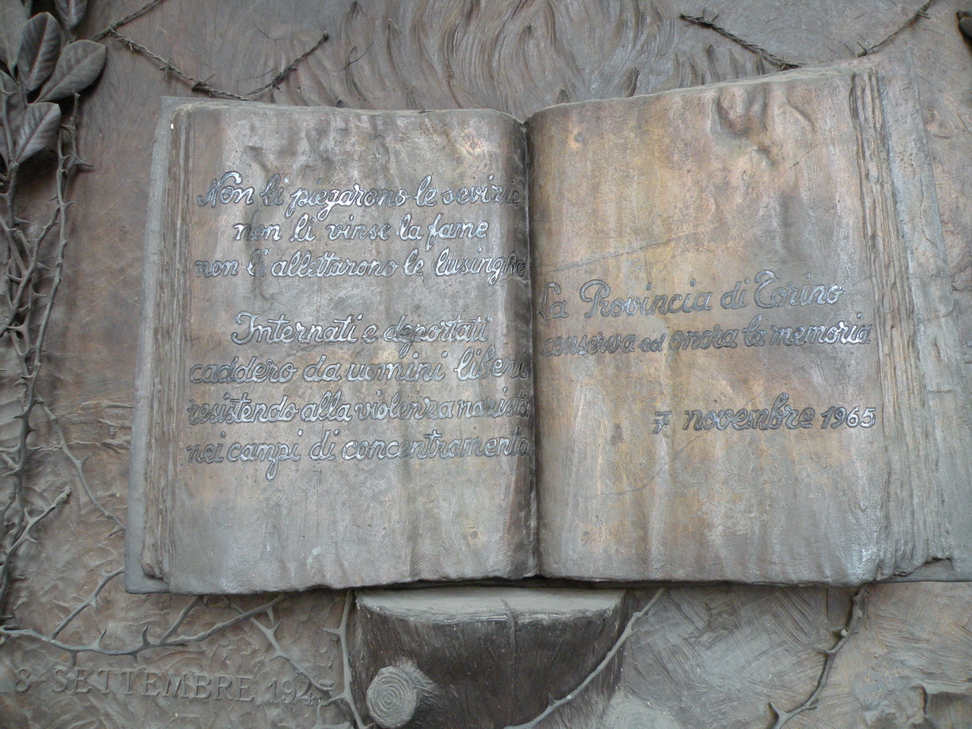 Non li piegarono le sevizie
non li vinse la fame
non li allettarono le lusinghe
Internati e deportati
caddero da uomini liberi
resistendo alla violenza nazista
nei campi di concentramento
La Provincia di Torino
conserva ed onora la memoria
7 novembre 1965
8 SETTEMBRE